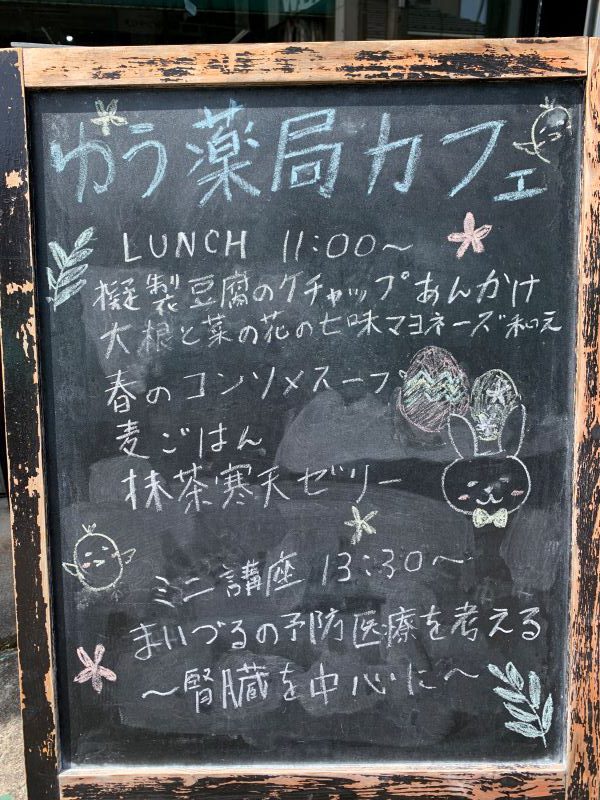 ゆう薬局カフェ
LUNCH 11:00～
擬製豆腐のケチャップあんかけ
大根と菜の花の七味マヨネーズ和え
春のコンソメスープ
麦ごはん
抹茶寒天ゼリー
ミニ講座 13:30～
まいづるの予防医療を考える
～腎臓を中心に～